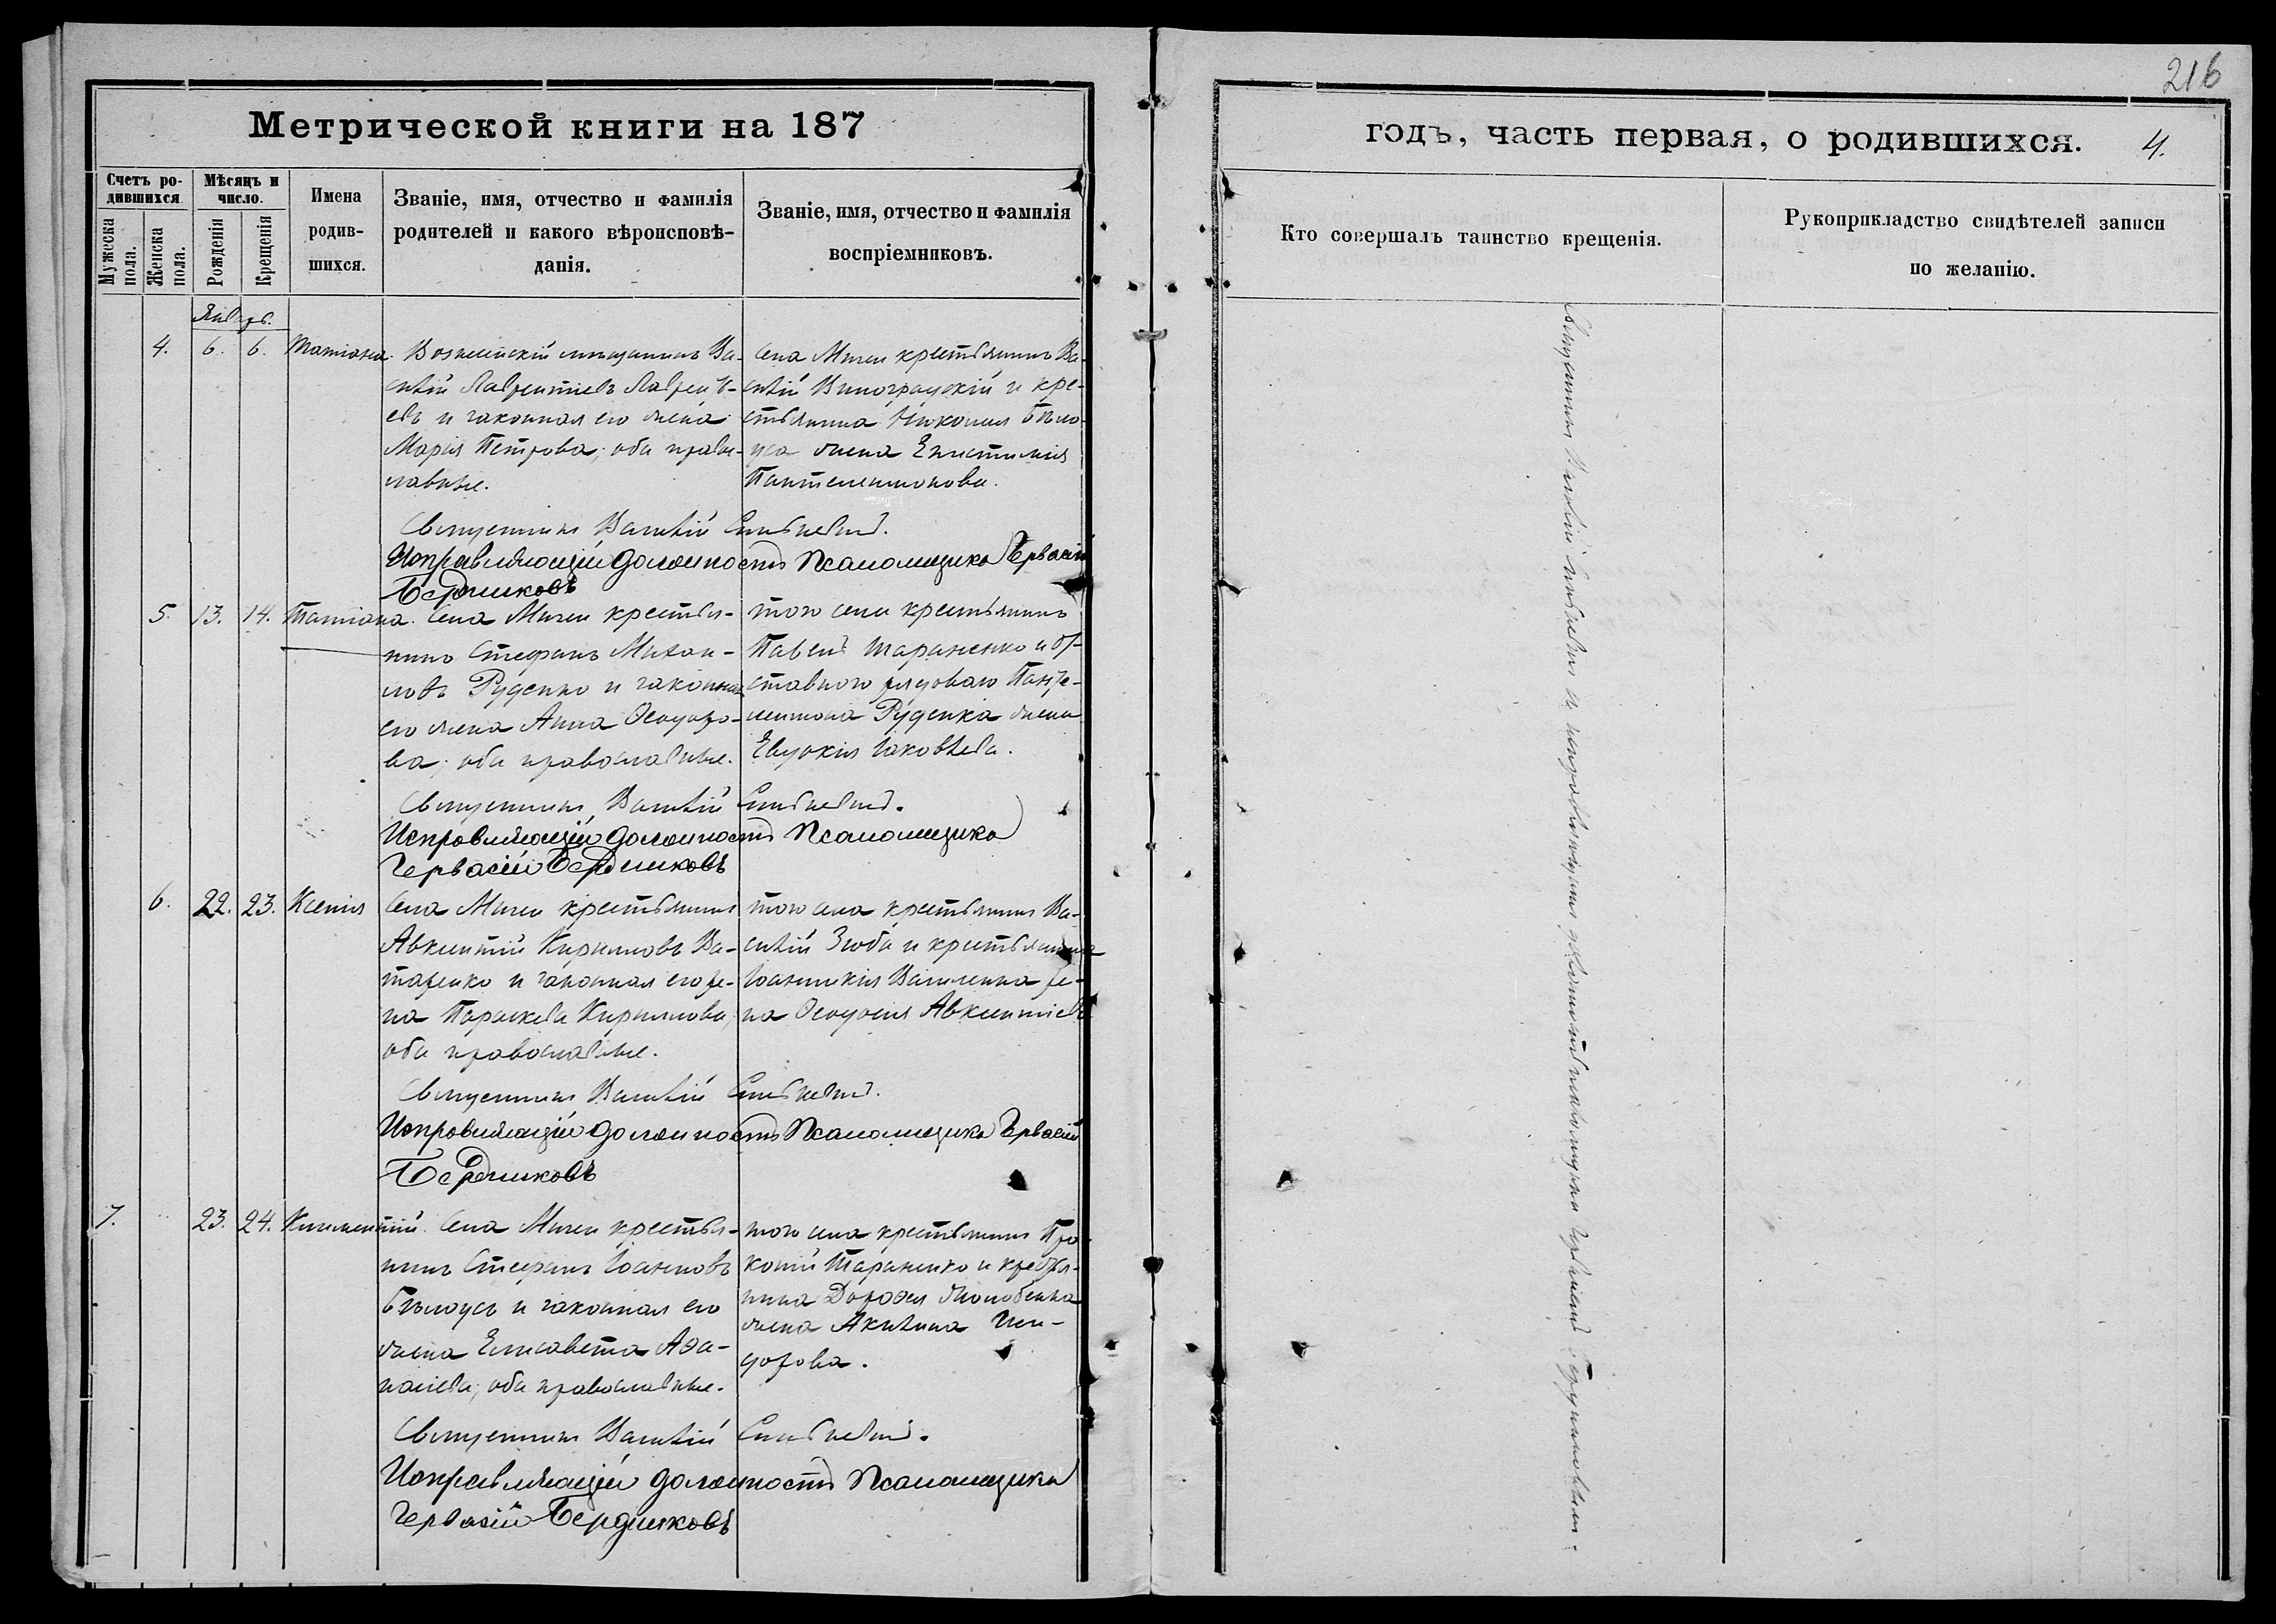 216
Метрической книги на 187
годъ, часть первая, о родившихся. 4.
Счетъ родившихся.
Мужеска пола.
Женска пола.
Мѣсяцъ и число.
Рожденія
Крещенія
Имена родившихся.
Званіе, имя, отчество и фамилія
родителей и какого вѣроисповѣ-
данія.
Званіе, имя, отчество и фамилія
воспріемниковъ.
Кто совершалъ таинство крещенія.
Рукоприкладство свидѣтелей записи
по желанію.
Январь.
4. 6. 6. Татіана.
Вознесенскій мѣщанинъ Ва-
силій Лаврентіевъ Лаврен-
евъ и законная его жена
Марія Петрова; оба право-
славные.
села Мигеи крестьянинъ Ва-
силій Виноградскій и кре-
стьянина Никона Бѣло-
уса жена Епистимія
Пантелеимонова.
Священникъ Василій
Исправляющій должность Псаломщика Гервасій
Бердниковъ
5. 13. 14. Татіана.
Села Мигеи крестья-
нинъ Стефанъ Михаи-
ловъ Руденко и законная
его жена Анна Ѳеодоро-
ва; оба православные.
того села крестьянинъ
Павелъ Тараненко и от-
ставного рядоваго Панте-
леимона Руденка жена
Евдокія Іаковлева.
Священникъ Василій
Исправляющій должность Псаломщика
Гервасій Бердниковъ
6. 22. 23. Ксенія
Села Мигеи крестьянинъ
Авксентій Кирилловъ Ва-
таренко и законная его же-
на Параскева Кириллова,
оба православные.
того села крестьянинъ Ва-
силій Зюба и крестьянина
Іоанникія Василенка же-
на Ѳеодосія Авксентіева
Священникъ Василій
Исправляющій должность Псаломщика Гервасій
Бердниковъ
7. 23. 24. Климентій.
Села Мигеи крестья-
нинъ Стефанъ Іоанновъ
Бѣлоусъ и законная его
жена Елисавета Аѳа-
насіева; оба православные.
того села крестьянинъ Про-
копій Тараненко и крестья-
нина Дороѳея
жена Акилина Иси-
дорова.
Священникъ Василій
Исправляющій должность Псаломщика
Гервасій Бердниковъ
Священникъ Василій